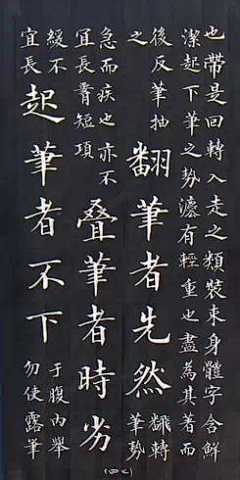 也帶是回轉入走之類裝束身體字含鮮
潔起下筆之勢有輕重也盡為其著而
後反筆抽
之
翻筆者先然
飜轉
筆勢
急而疾也亦不
宜長短項
叠筆者時劣
緩不
宜長
起筆者不下
于腹內舉
勿使露筆
(四七)